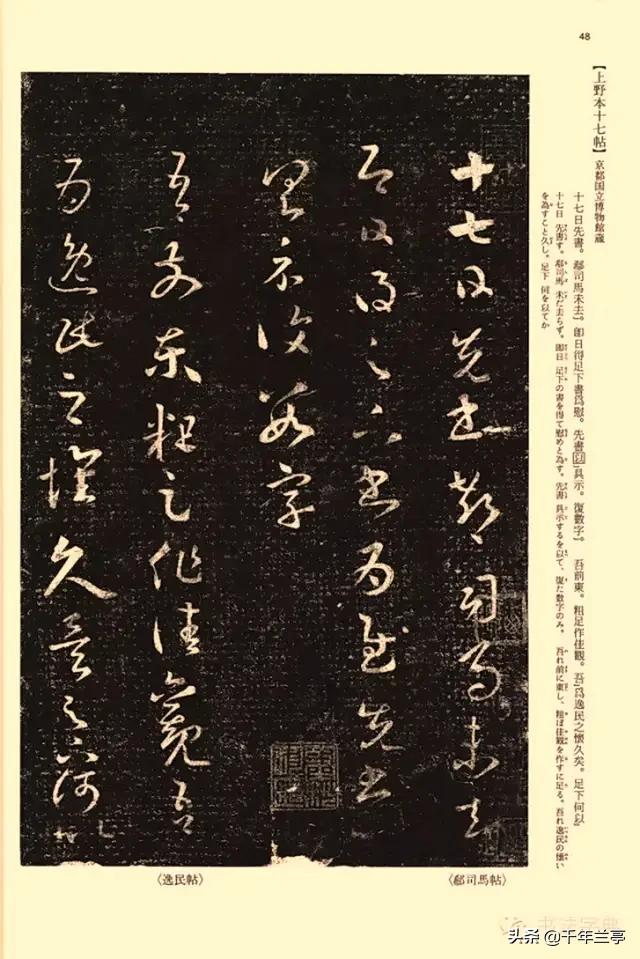 48
【上野本十七帖】 京都国立博物館蔵
十七日先書。郗司馬未去」。即日得足下書爲慰。先書以」具示。復數字」。 吾前東。粗足作佳觀。吾」爲逸民之懷久矣。足下何以」
十七日 先書す。郗司馬 未だ去らず。即日 足下の書を得て慰めと為す。先書 具示するを以て、復た数字のみ。 吾れ前に東し、粗ぼ佳観を作すに足る。吾れ逸民の懐い
を為すこと久し。足下 何を以てか
十七日先書郗司馬未去
即日得足下書為慰先書
具示復數字
吾前東粗足作佳觀吾
為逸民之懷久矣足下何
〈郗司馬帖〉
〈逸民帖〉
头条 @千年兰亭